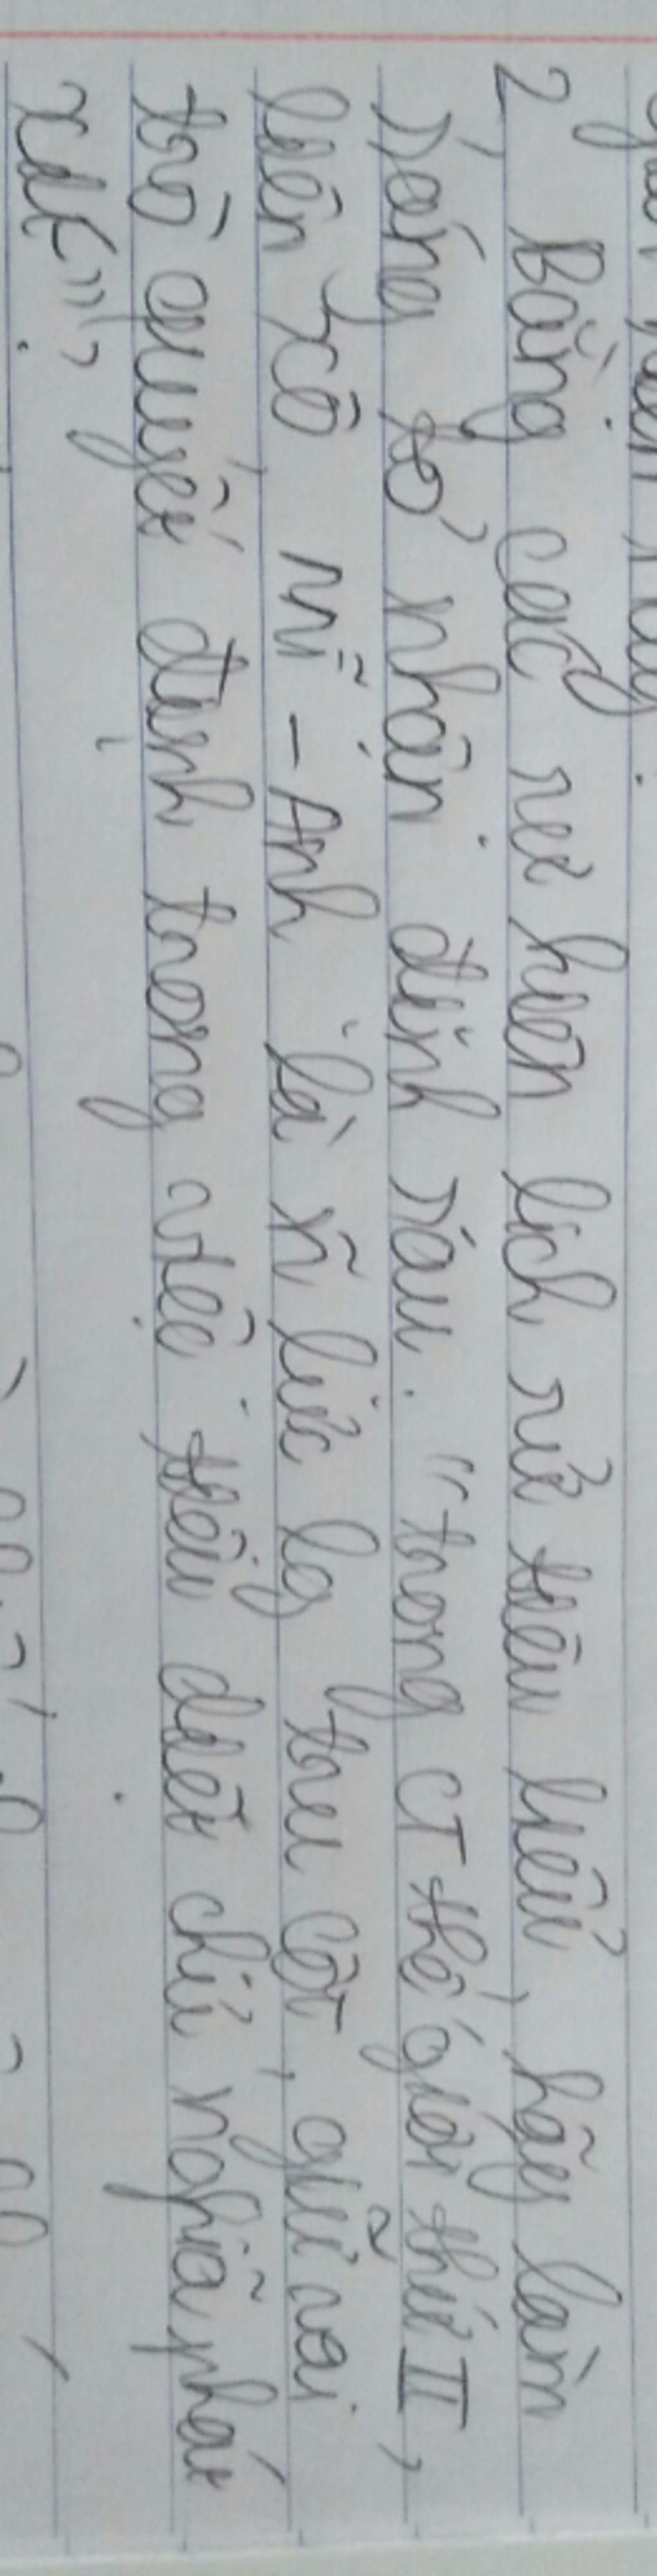 2, Bằng các sự kiện lịch sử tiêu biểu, hãy làm
sáng tỏ nhận định sau. "trong CT thế giới thứ II,
liên Xô, Mĩ - Anh là lực lg trụ cột, giữ vai
trò quyết định trong việc tiêu diệt chủ nghĩa phát
xít"